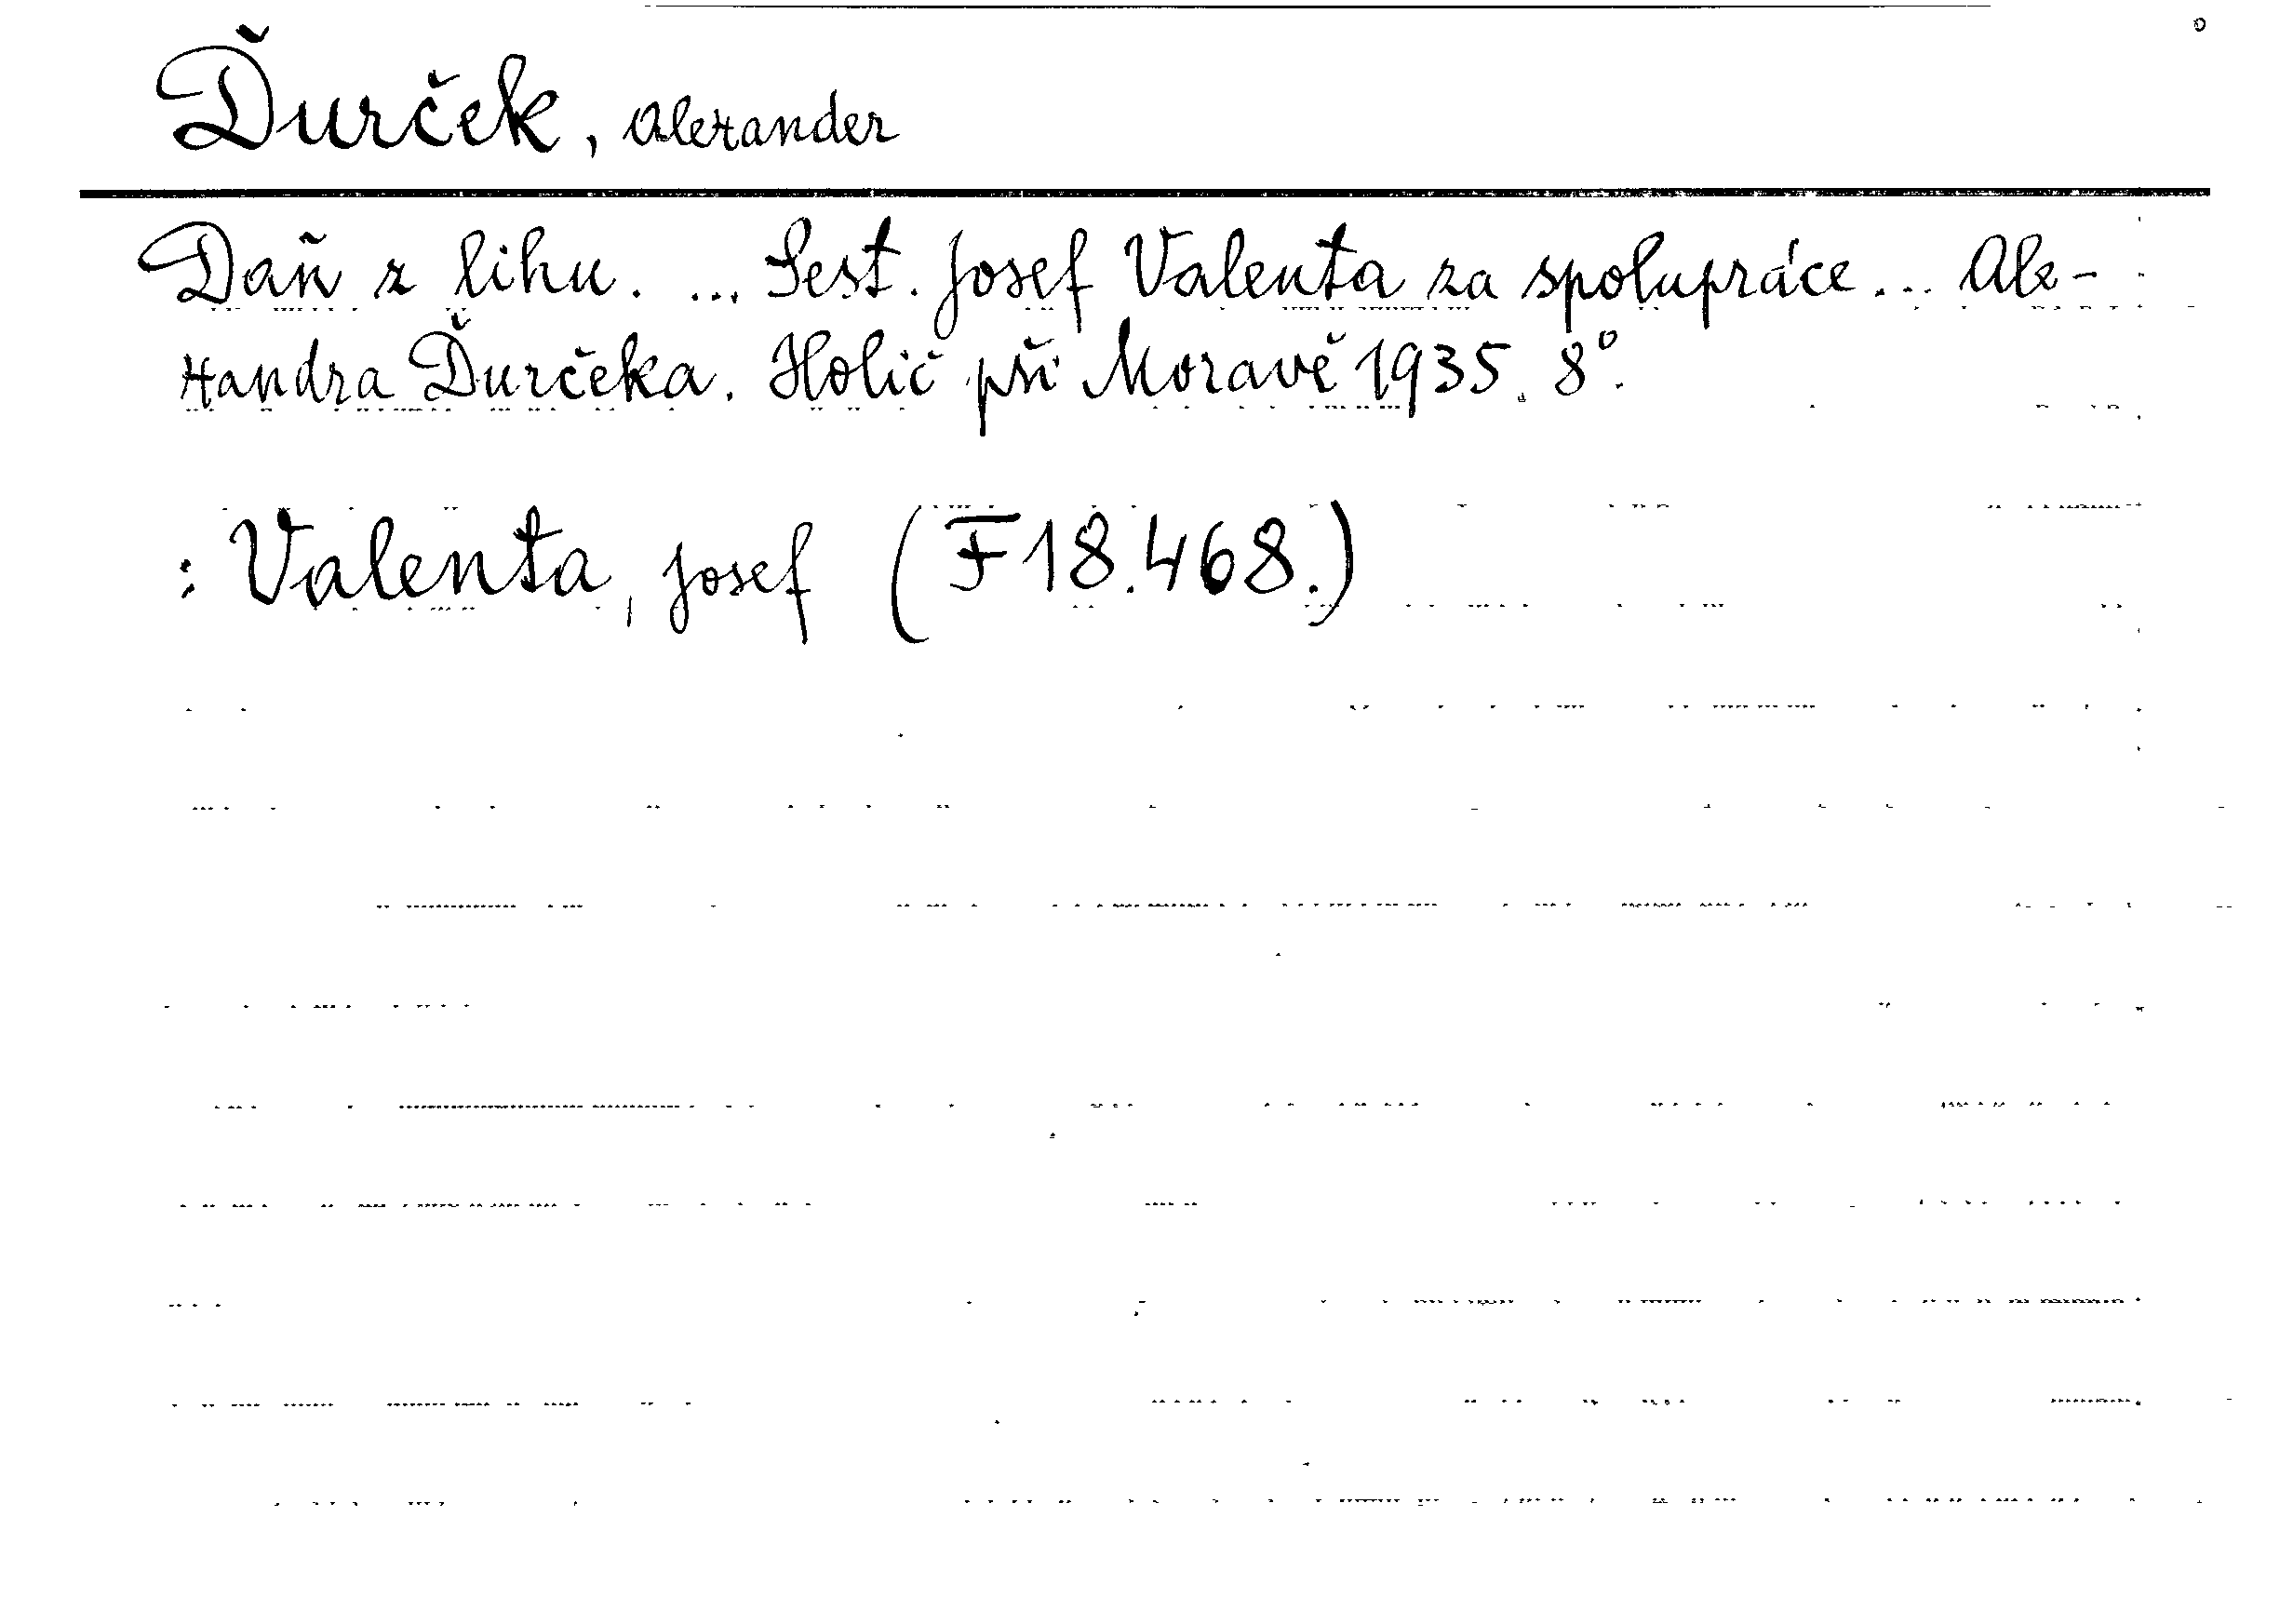 Ďurček, Alexander
Daň z lihu. ... Sest. Josef Valenta za spolupráce ... Ale-
xandra Ďurčeka. Holič při Moravě 1935. 8°.
: Valenta, Josef (F 18.468.)